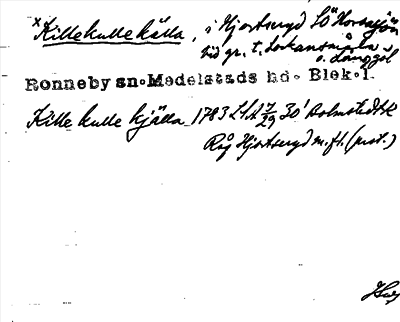 x Killekullekälla, i Hjortseryd SO Horssjön
vid gr. t.
o. Långsjö
Ronneby sn. Medelstads hd. Blek.l.
Kille kulle kjälla 1783 LSA 30' Holmstedt k
Rå Hjortseryd m.fl. (prot.)